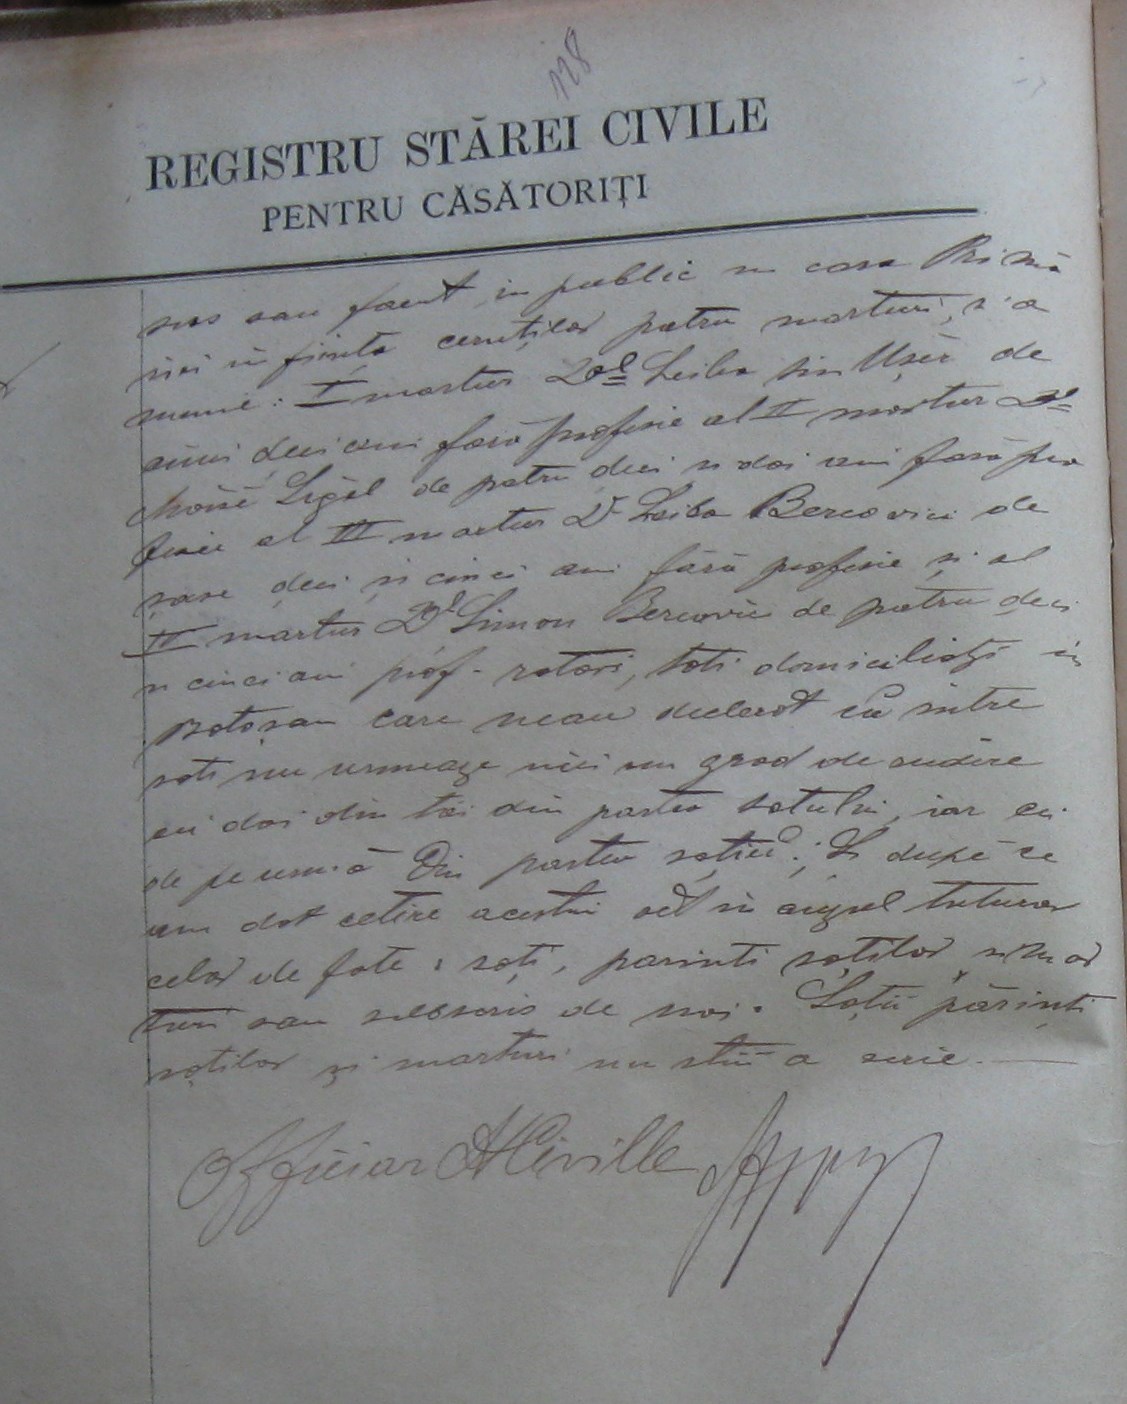 128
REGISTRU STĂREI CIVILE
PENTRU CĂSĂTORIȚI
sus sau facut in public in casa Primă
riei in fiinta ceruților patru marturi, s'a
nume: I martur Dl Leiba sin Ușer de
cinci deci ani fară profesie al II martur Dl
Moisă Sigăl de patru deci si doi ani fară pro
fesie al III martur Dl Leiba Bercovici de
șase deci și cinci ani fără profesie și al
IV martur Dl Simon Bercovici de patru deci
si cinci ani prof. rotari, toti domiciliați in
Botoșan care neau declarat că intre
soti nu urmeaze nici un grad de rudire
cei doi din tăi din partea sotului, iar cei
de pe urmă din partea soției; Și după ce
am dat cetire acestui act in auzul tuturor
celor de fate, soți, parinti soților si mar
turi sau subscris de noi. Soții părinți
soților și marturi nu stiu a scrie.
Officiar St Civille